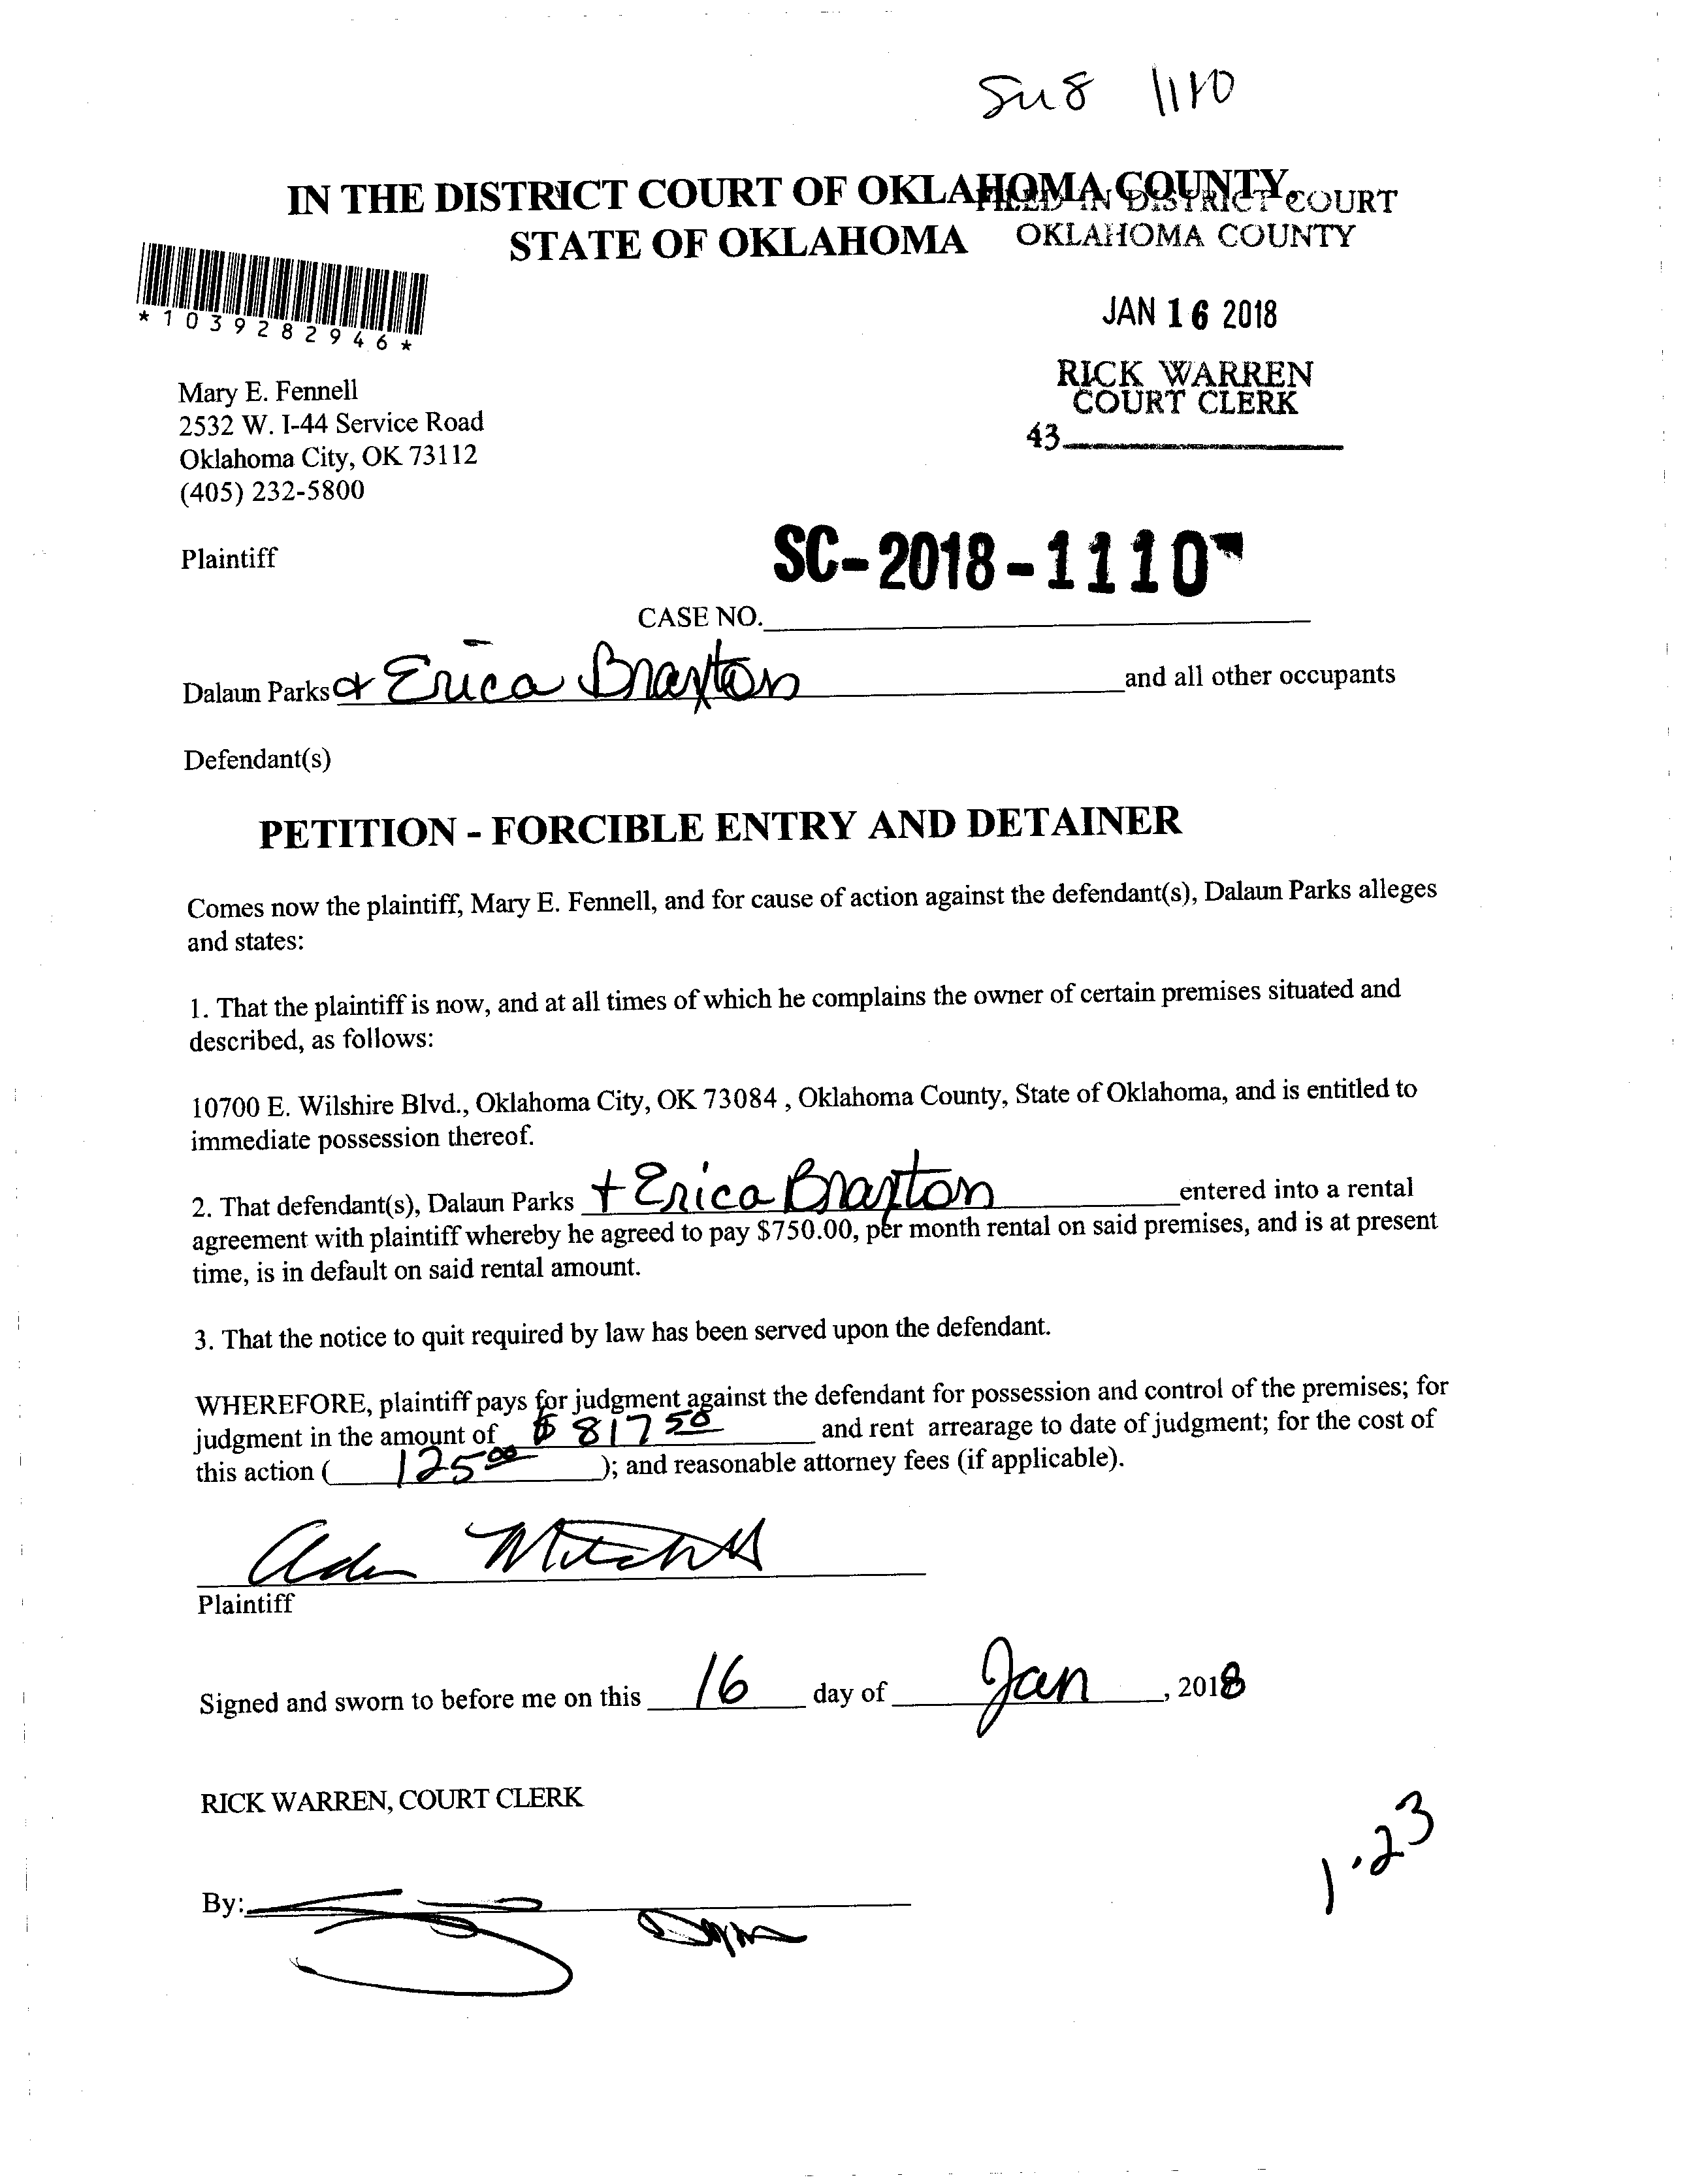 IN THE DISTRICT COURT OF OKLAHOMA COUNTY,
STATE OF OKLAHOMA
FILED IN DISTRICT COURT
OKLAHOMA COUNTY
JAN 16 2018
RICK WARREN
COURT CLERK
43
*1039282946*
Mary E. Fennell
2532 W. I-44 Service Road
Oklahoma City, OK 73112
(405) 232-5800
Plaintiff
SC-2018-1110
CASE NO.
Dalaun Parks & Erica Braxton and all other occupants
Defendant(s)
PETITION - FORCIBLE ENTRY AND DETAINER
Comes now the plaintiff, Mary E. Fennell, and for cause of action against the defendant(s), Dalaun Parks alleges
and states:
1. That the plaintiff is now, and at all times of which he complains the owner of certain premises situated and
described, as follows:
10700 E. Wilshire Blvd., Oklahoma City, OK 73084 , Oklahoma County, State of Oklahoma, and is entitled to
immediate possession thereof.
2. That defendant(s), Dalaun Parks + Erica Braxton entered into a rental
agreement with plaintiff whereby he agreed to pay $750.00, per month rental on said premises, and is at present
time, is in default on said rental amount.
3. That the notice to quit required by law has been served upon the defendant.
WHEREFORE, plaintiff pays for judgment against the defendant for possession and control of the premises; for
judgment in the amount of $ 817 50 and rent arrearage to date of judgment; for the cost of
this action ( 125 00 ); and reasonable attorney fees (if applicable).
Plaintiff
Signed and sworn to before me on this 16 day of Jan , 2018
RICK WARREN, COURT CLERK
1.23
By: